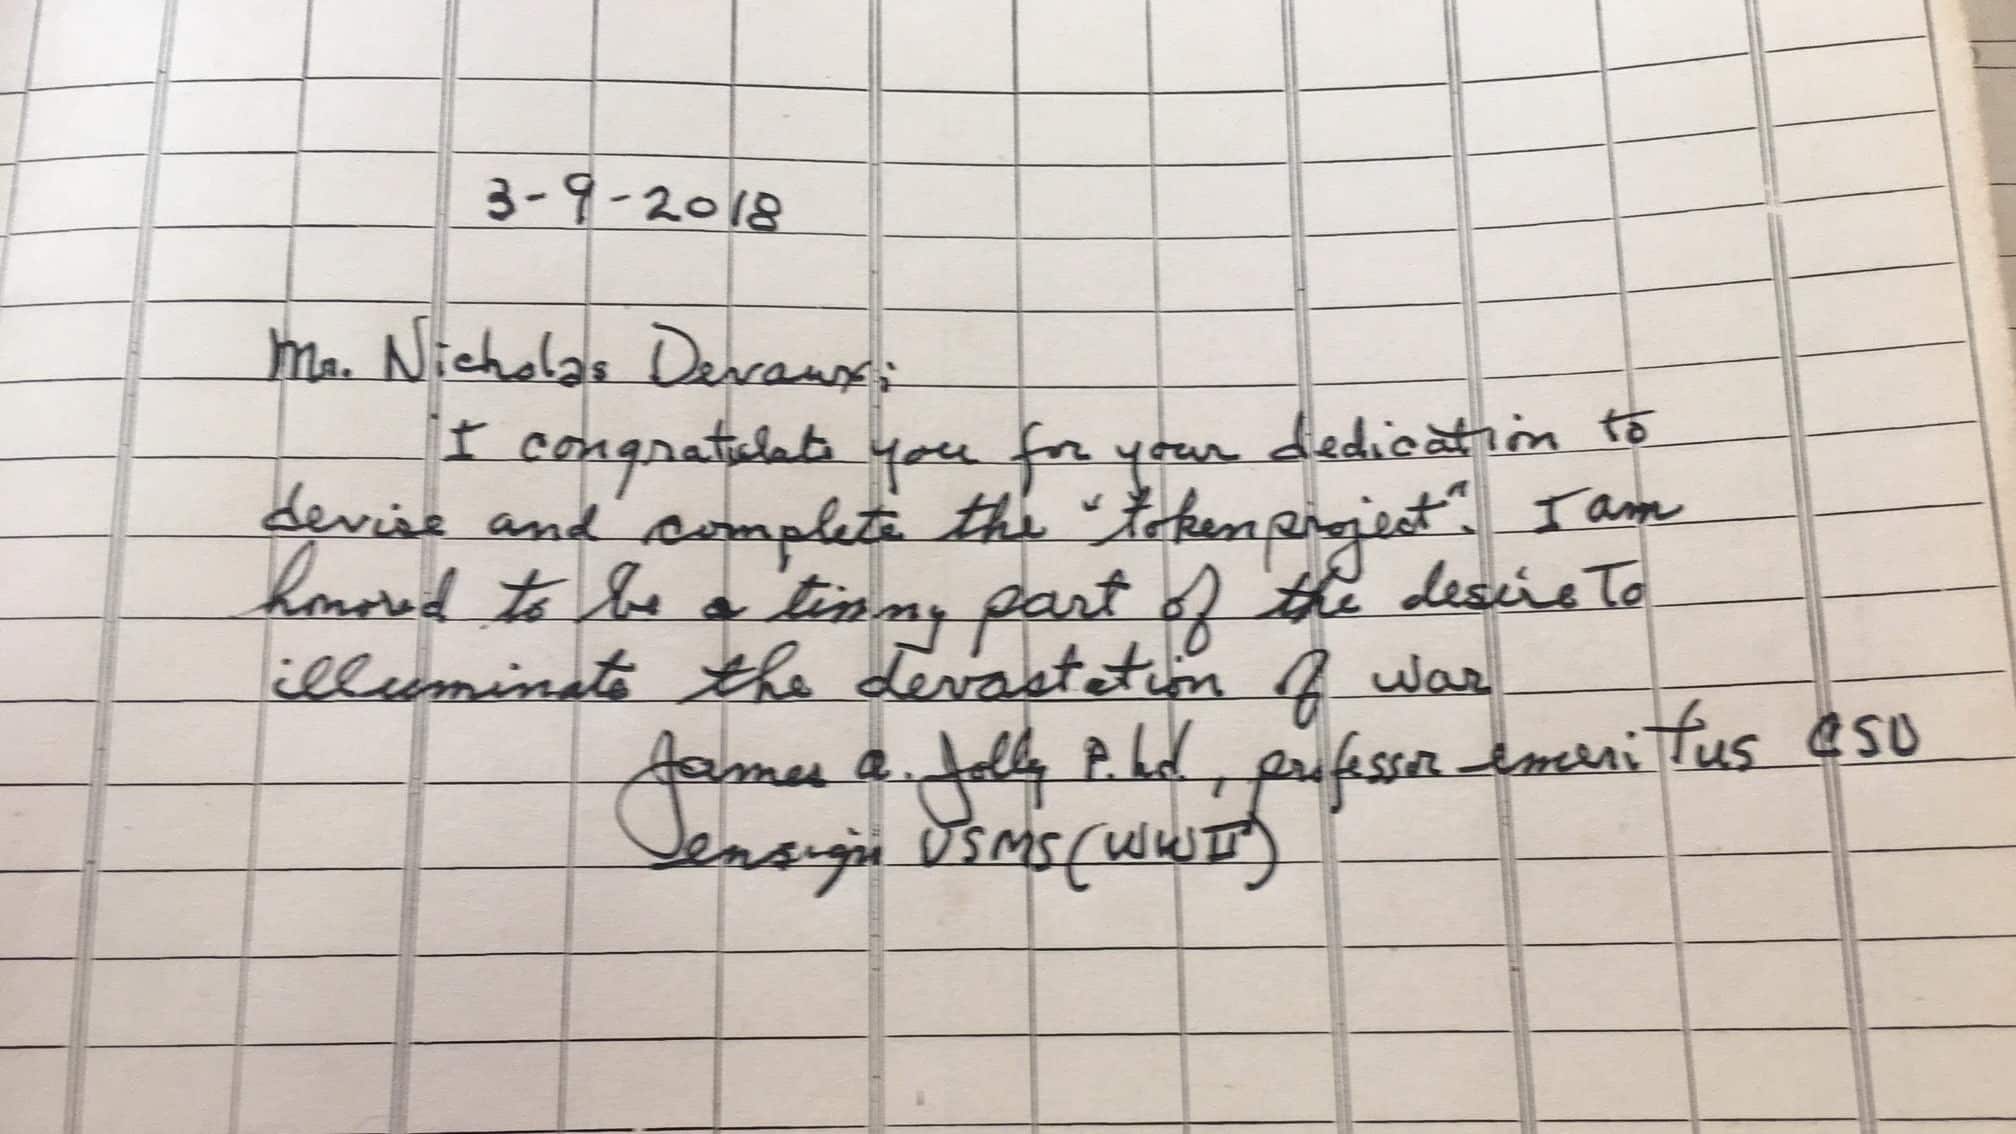 3-9-2018
Mr. Nicholas Devaux;
I congratulate you for your dedication to
devise and complete the "token project". I am
honored to be a tinny part of the desire To
illuminate the devastation of war
James A. Jolly P.hd., professor emeritus CSU
ensign USMS (WWII)